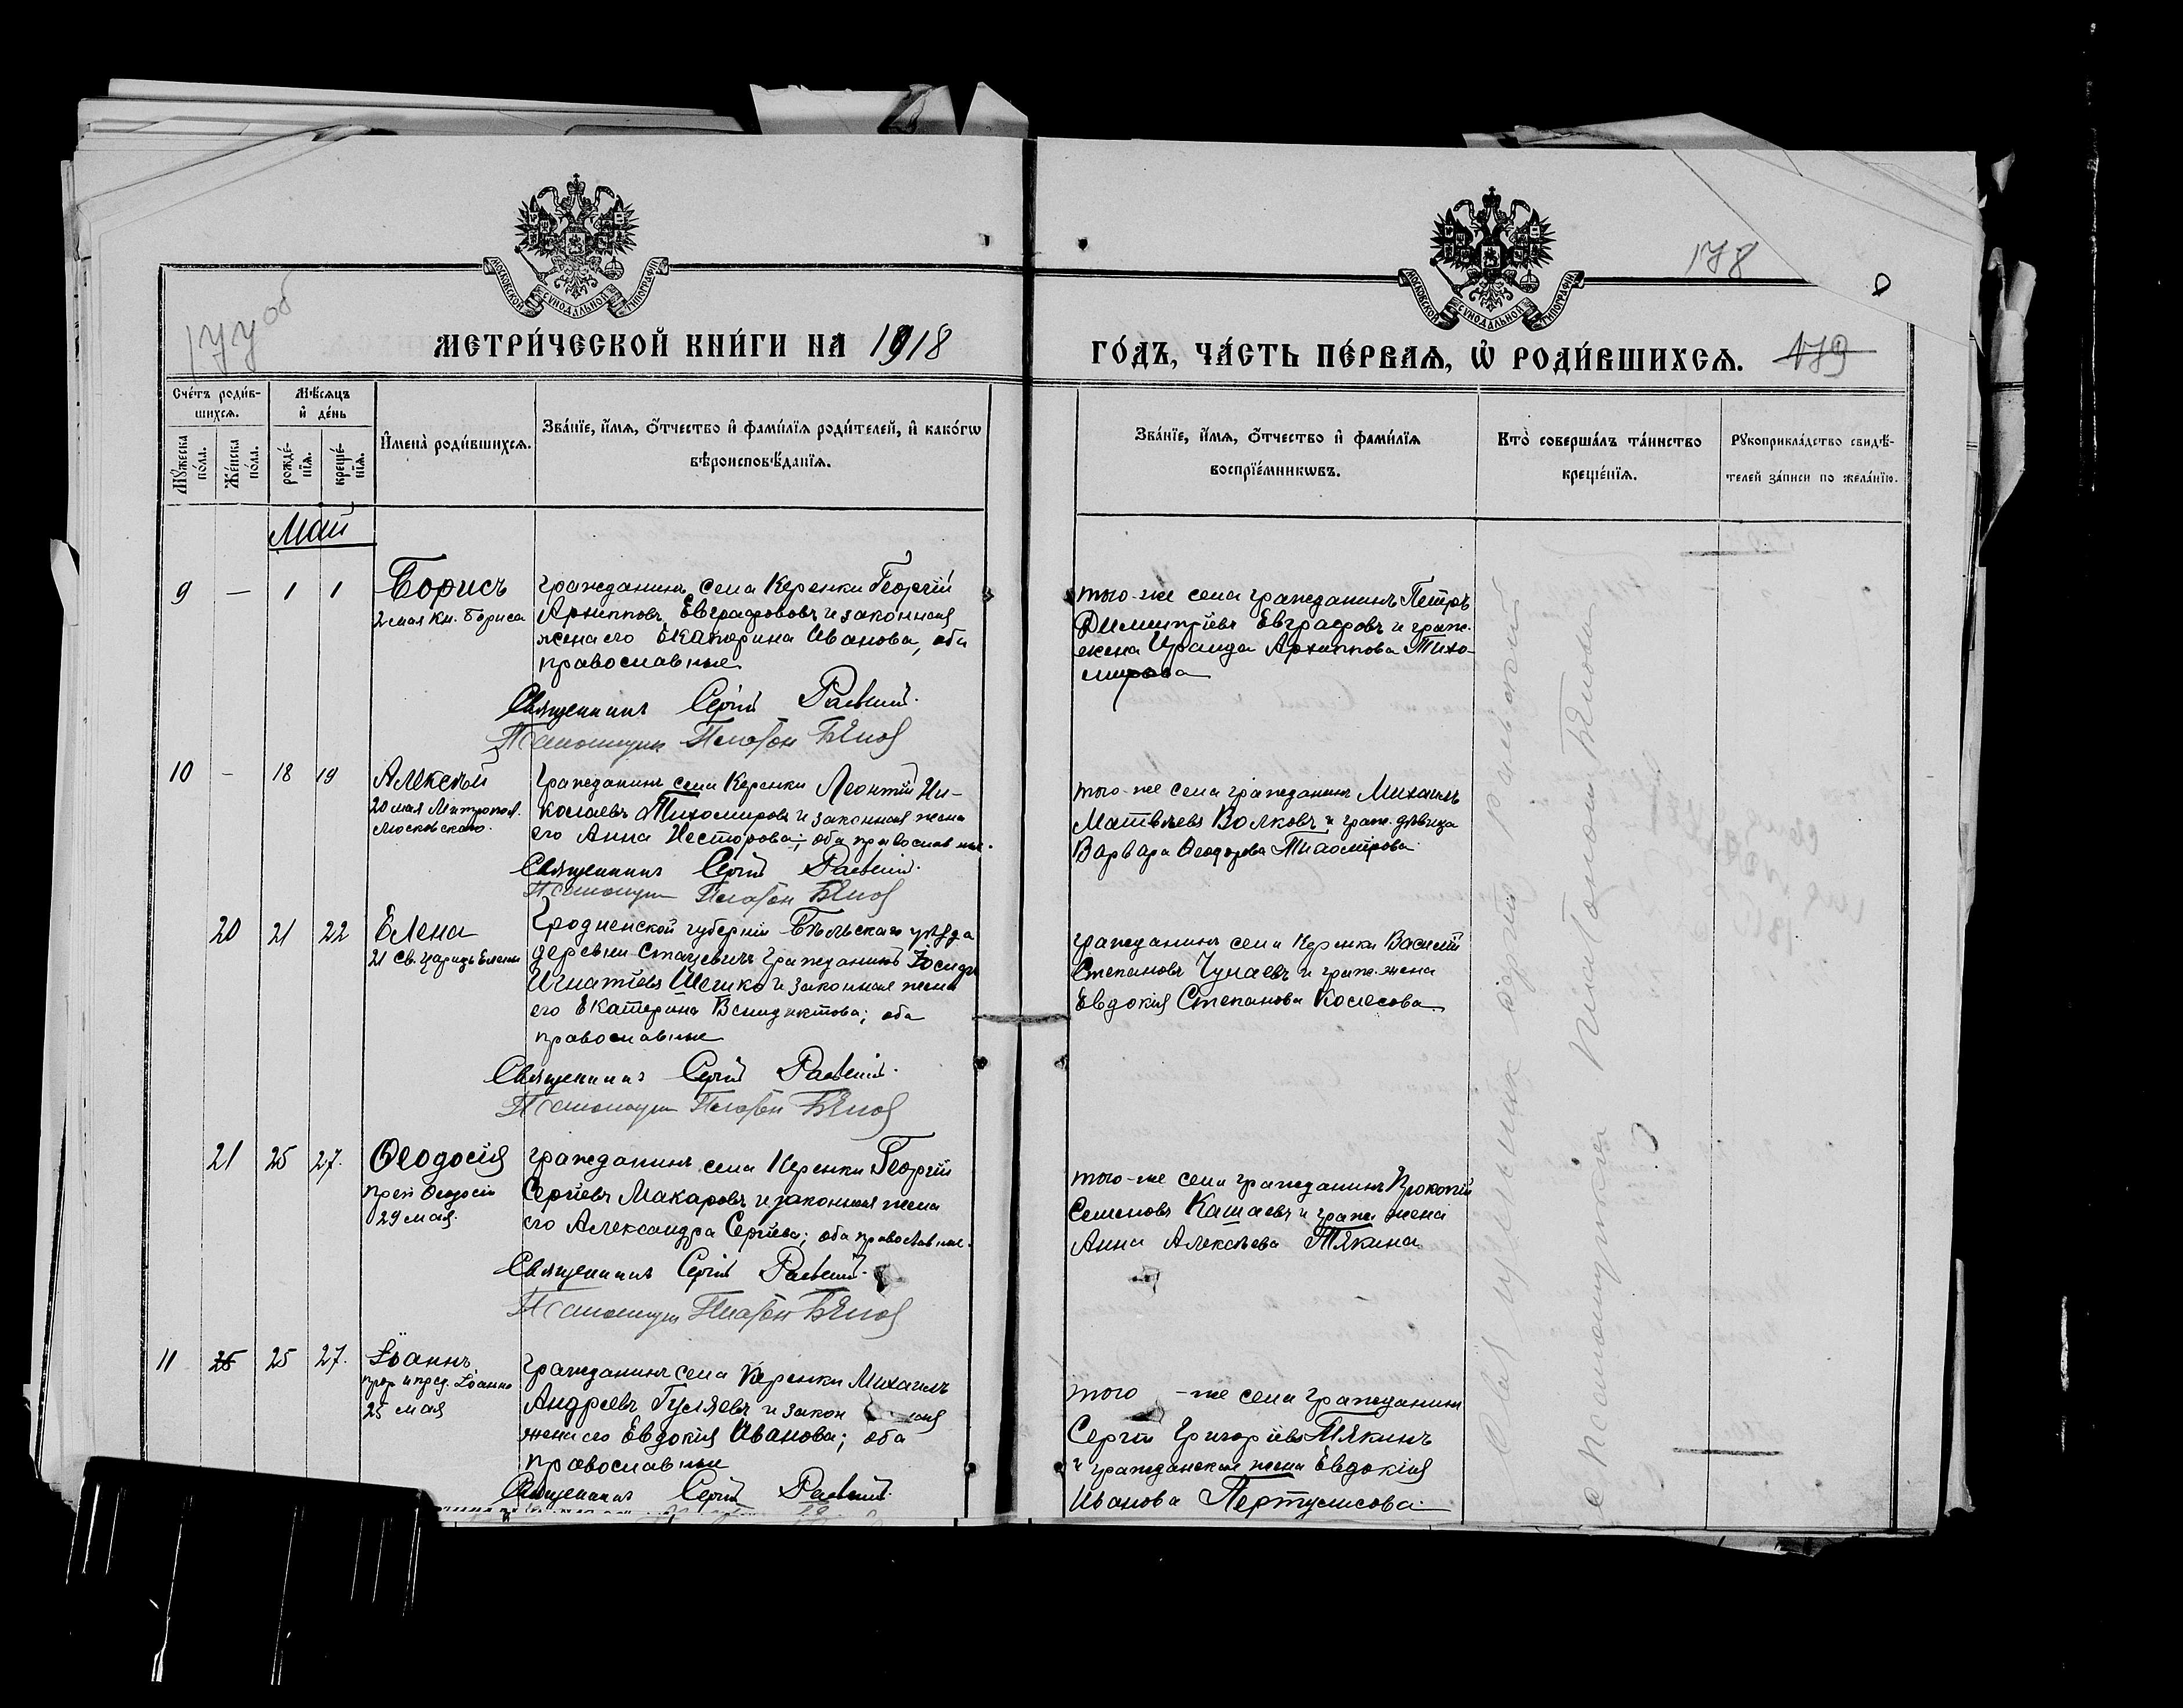 МОСКОВСКОЙ СУНОДАЛЬНОЙ ТИПОГРАФІИ
МОСКОВСКОЙ СУНОДАЛЬНОЙ ТИПОГРАФІИ
177об
178
МЕТРИ́ЧЕСКОЙ КНИ́ГИ НА 1918
ГО́ДЪ, ЧА́СТЬ ПЕ́РВАѦ, Ѡ҆ РОДИ́ВШИХСѦ.
179
Сче́тъ роди́в-
шихсѧ.
Мѣ́сѧцъ
и҆ де́нь
Мꙋ́жеска
по́ла.
Же́нска
по́ла.
рожде́-
нїѧ.
креще́-
нїѧ.
И҆мена̀ роди́вшихсѧ.
Зва́нїе, и҆́мѧ, ѻ҆́тчество и҆ фами́лїѧ роди́телей, и҆ како́гѡ
вѣроисповѣ́данїѧ.
Зва́нїе, и҆́мѧ, ѻ҆́тчество и҆ фами́лїѧ
воспрїе́мникѡвъ.
Кто̀ соверша́лъ та́инство
креще́нїѧ.
Рꙋкоприкла́дство свидѣ́-
телей за́писи по жела́нїю.
Май
9 — 1 1
Борисъ
2 мая Кн. Бориса
гражданинъ села Керенки Георгій
Архипповъ Евграфовъ и законная
жена его Екатерина Иванова, оба
православные
Священникъ Сергій
Псаломщик Платон Белов
того-же села гражданинъ Петръ
Димитріевъ Евграфовъ и граж.
жена Ираида Архиппова Тихо-
мирова
10 - 18 19
Алексѣй
20 мая Митропол.
Московскаго.
Гражданинъ села Керенки Леонтій Ни-
колаевъ Тихомировъ и законная жена
его Анна Несторова; оба православные.
Священникъ Сергій
Псаломщик Платон Белов
того-же села гражданинъ Михаилъ
Матвѣевъ Волковъ и граж. дѣвица
Варвара Ѳеодорова Тихомирова
20 21 22
Елена
21 св. Царицы Елены
Гродненской губерніи Бѣльскаго уѣзда
деревни Стацевичи гражданинъ Іосифъ
Игнатіевъ и законная жена
его Екатерина Венидиктова; оба
православные
Священникъ Сергій
Псаломщик Платон Белов
гражданинъ села Керенки Василій
Степановъ Чупаевъ и граж. жена
Евдокія Степанова Колесова
21 25 27.
Ѳеодосія
преп Ѳеодосіи
29 мая.
гражданинъ села Керенки Георгій
Сергіевъ Макаровъ и законная жена
его Александра Сергіева; оба православные.
Священникъ Сергій
Псаломщик Платон Белов
того-же села гражданинъ Прокопій
Семеновъ Кашаевъ и граж. жена
Анна Алексѣева Тякина
11 25 27.
Іоаннъ
прор и пред. Іоанна
25 мая
гражданинъ села Керенки Михаилъ
Андреевъ Гуляевъ и закон ная
жена его Евдокія Иванова; оба
православные
Священникъ Сергій
того -же села гражданинъ
Сергій Григоріевъ Тякинъ
и гражданская жена Евдокія
Иванова